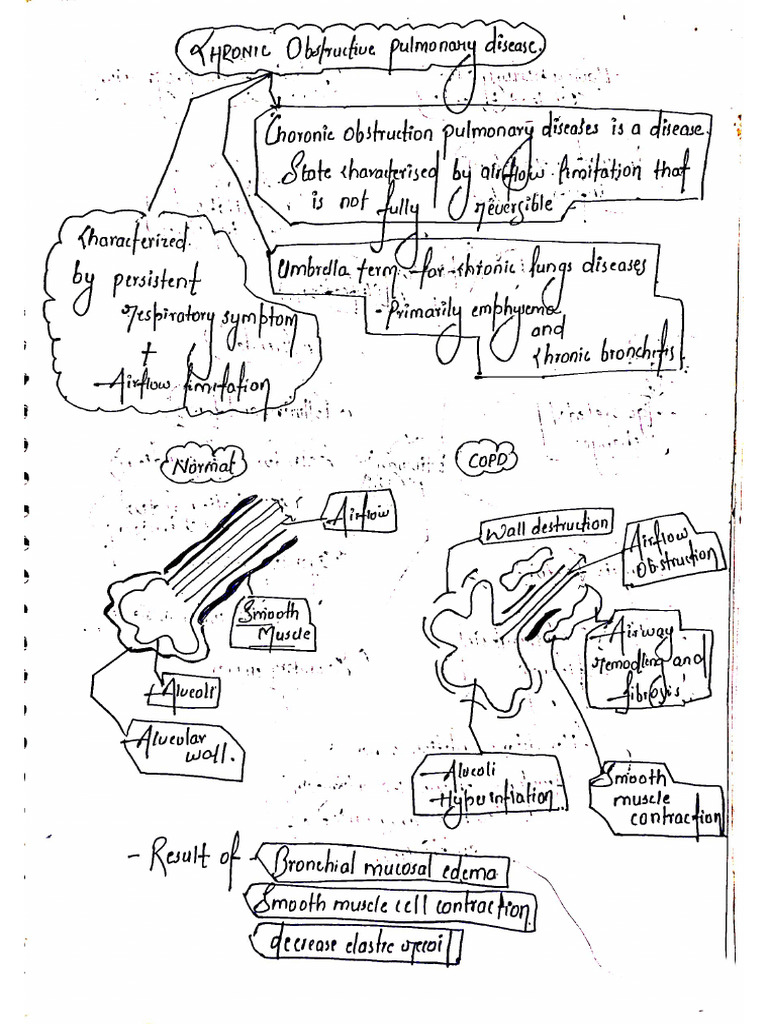 CHRONIC Obstructive pulmonary disease.
Choronic obstruction pulmonary diseases is a disease.
State characterised by airflow limitation that
is not fully reversible
Characterized
by persistent
respiratory symptom
+
Airflow limitation
Umbrella term for chronic lungs diseases
- Primarily emphysema
and
chronic bronchitis.
Normal
COPD
Airflow
Smooth
Muscle
Alveoli
Alveolar
wall.
Wall destruction
Airflow
Obstruction
Airway
remodling and
fibrosis
Alveoli
Hyperinflation
Smooth
muscle
contraction
- Result of
Bronchial mucosal edema
Smooth muscle cell contraction
decrease elastic